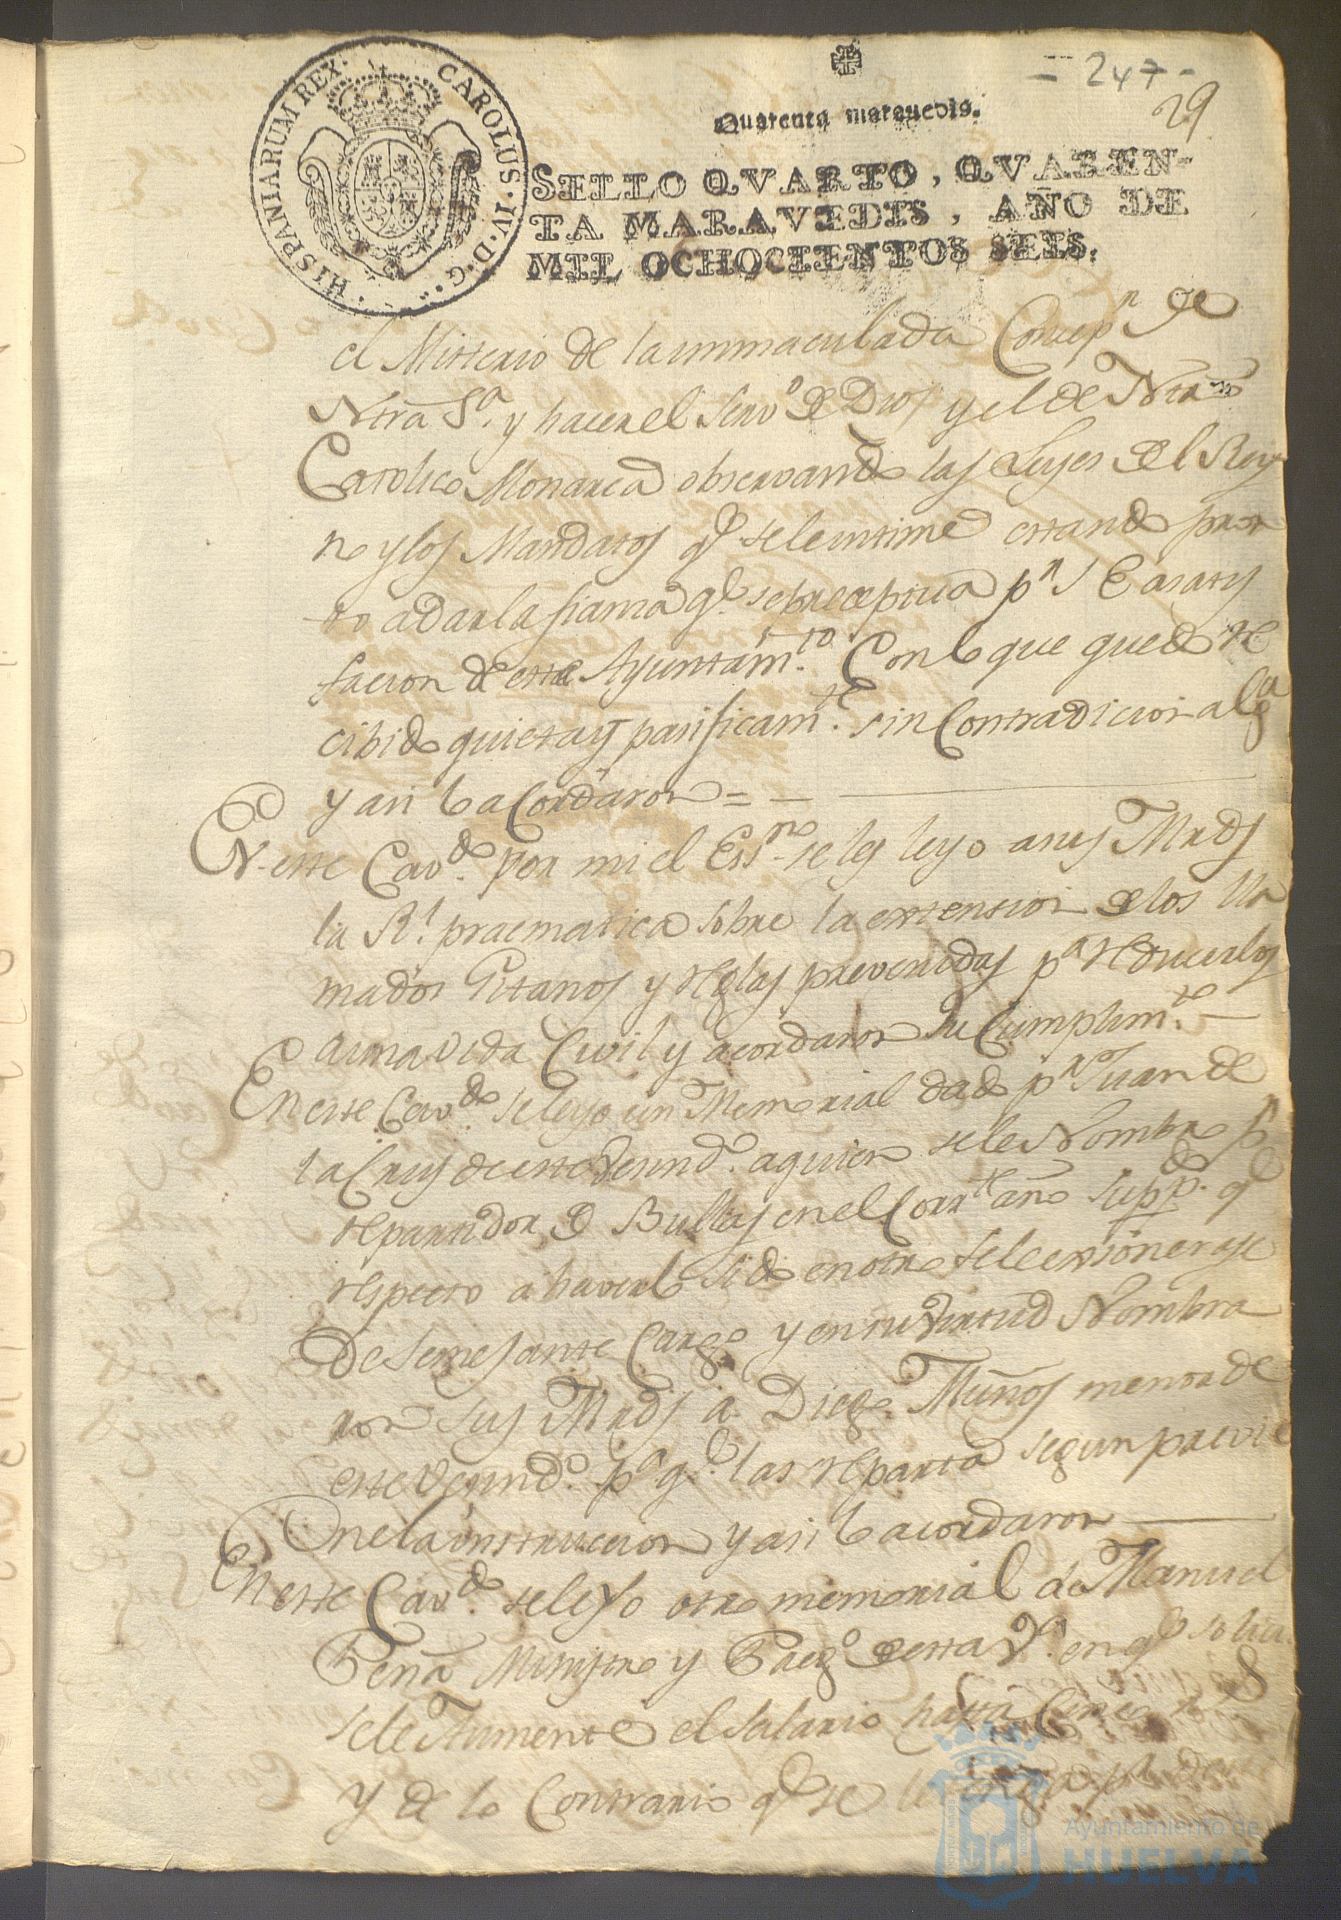 - 247 -
29
Quarenta marauedis.
SELLO QVARTO, QVAREN-
TA MARAVEDIS, AÑO DE
MIL OCHOCIENTOS SEIS.
HISPANIARUM REX. CAROLUS. IV. D. G.
el Misterio de la immaculada Concepn. de
Ntrã Sª. y hacer el Servº de Dios y el de Ntrõ
Catolico Monarca observando las Leyes del Rey
no y los Mandatos q.e se le intime estando pron
to a dar la fianza q.e se preceptua pr. S E a satis
facion de este Ayuntam.to Con lo que quedo re
cibido quieta y pasificam.te sin Contradicion alga
y asi lo acordaron = —
En este Cavdo. por mi el Essno. se les leyo a sus Mrds
la Rl. pracmatica sobre la extension de los lla
mados Gitanos y reglas prevenidas pa reducirlos
a una vida Civil y acordaron su Cumplim.to —
En este Cavdo. se leyo un Memorial dado pr. Juan de
la Cruz de este Vesindo. a quien se le Nombro pr.
repartidor de Bullas en el Corrte. año supp.do q.e
respecto a haverlo sido en otro se le exsonerase
de Semejante Cargo y en su Virtud Nombra
ron Sus Mrds a Diego Muños menor de
este Vesindo. pa q.e las reparta segun previe
ne la instruccion y asi lo acordaron —
En este Cavdo. se leyo otro memorial de Manuel
Peña Ministro y Preg.º de esta Vª. en q.e solici
se le Aumente el salario hasta Cinco rs
y de lo Contrario q.e se le
Ayuntamiento de
HUELVA